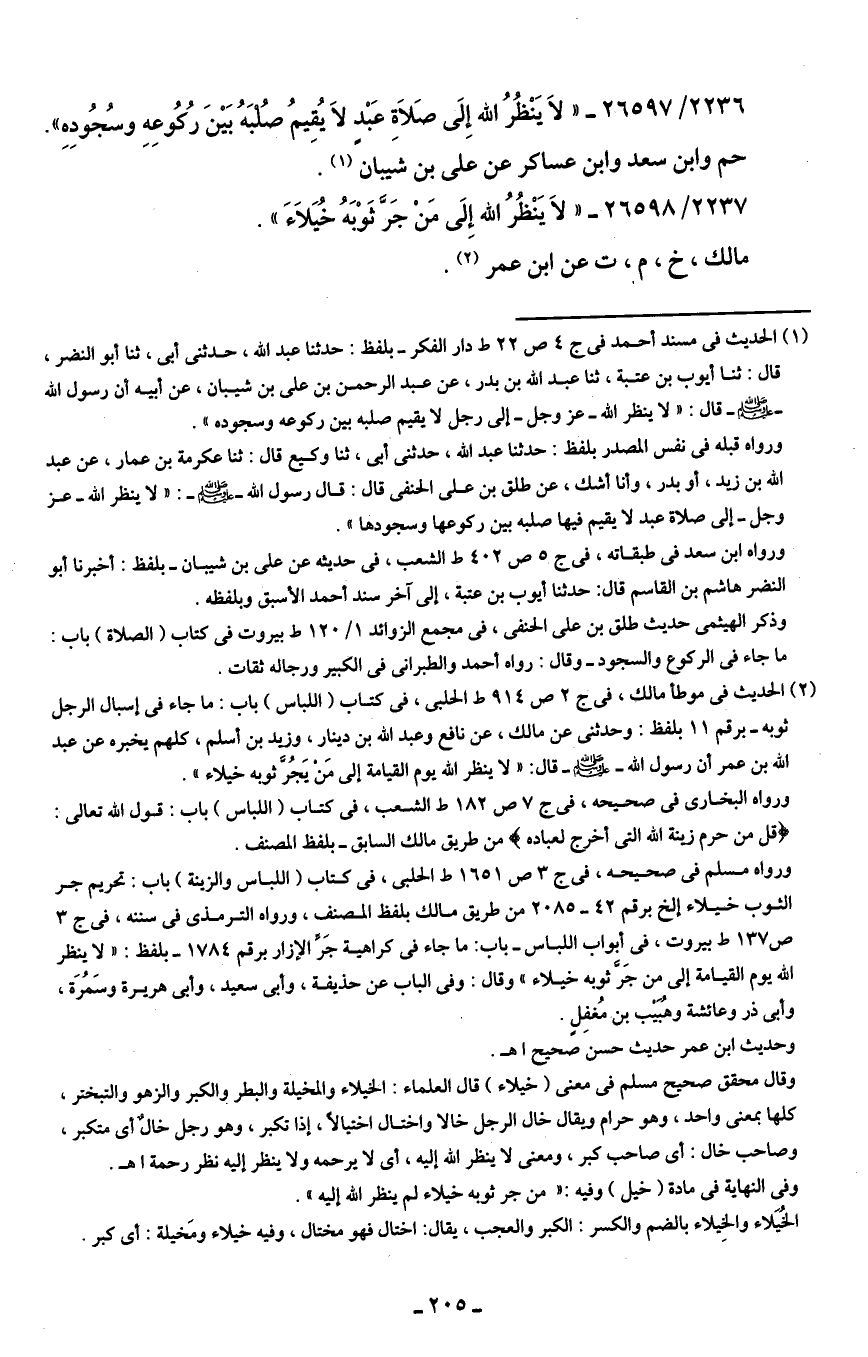 ٢٦٥٩٧/٢٢٣٦ ـ « لاَ يَنْظُرُ الله إِلَى صَلاَةِ عَبْدٍ لاَ يُقِيمُ صُلْبَهُ بَيْنَ رُكُوعِهِ وسُجُودِهِ».
حم وابن سعد وابن عساكر عن على بن شيبان (١) .
٢٦٥٩٨/٢٢٣٧ ـ « لاَ يَنْظُرُ الله إِلَى مَنْ جَرَّ ثَوْبَهُ خُيَلاَءَ » .
مالك ، خ ، م ، ت عن ابن عمر (٢) .
(١) الحديث فى مسند أحمد فى ج ٤ ص ٢٢ ط دار الفكر ـ بلفظ : حدثنا عبد الله ، حدثنى أبى ، ثنا أبو النضر ،
قال : ثنا أيوب بن عتبة ، ثنا عبد الله بن بدر ، عن عبد الرحمن بن على بن شيبان ، عن أبيه أن رسول الله
ـ ﷺ ـ قال : « لا ينظر الله ـ عز وجل ـ إلى رجل لا يقيم صلبه بين ركوعه وسجوده » .
ورواه قبله فى نفس المصدر بلفظ : حدثنا عبد الله ، حدثنى أبى ، ثنا وكيع قال : ثنا عكرمة بن عمار ، عن عبد
الله بن زيد ، أو بدر ، وأنا أشك ، عن طلق بن على الحنفى قال : قال رسول الله ـ ﷺ ـ : « لا ينظر الله ـ عز
وجل ـ إلى صلاة عبد لا يقيم فيها صلبه بين ركوعها وسجودها » .
ورواه ابن سعد فى طبقاته ، فى ج ٥ ص ٤٠٢ ط الشعب ، فى حديثه عن على بن شيبان ـ بلفظ : أخبرنا أبو
النضر هاشم بن القاسم قال: حدثنا أيوب بن عتبة ، إلى آخر سند أحمد الأسبق وبلفظه .
وذكر الهيثمى حديث طلق بن على الحنفى ، فى مجمع الزوائد ١/ ١٢٠ ط بيروت فى كتاب ( الصلاة ) باب :
ما جاء فى الركوع والسجود ـ وقال : رواه أحمد والطبرانى فى الكبير ورجاله ثقات .
(٢) الحديث فى موطأ مالك ، فى ج ٢ ص ٩١٤ ط الحلبى ، فى كتاب ( اللباس ) باب : ما جاء فى إسبال الرجل
ثوبه ـ برقم ١١ بلفظ : وحدثنى عن مالك ، عن نافع وعبد الله بن دينار ، وزيد بن أسلم ، كلهم يخبره عن عبد
الله بن عمر أن رسول الله ـ ﷺ ـ قال: « لا ينظر الله يوم القيامة إلى مَنْ يَجُرُّ ثوبه خيلاء » .
ورواه البخارى فى صحيحه ، فى ج ٧ ص ١٨٢ ط الشعب ، فى كتاب ( اللباس ) باب : قول الله تعالى :
﴿قل من حرم زينة الله التى أخرج لعباده ﴾ من طريق مالك السابق ـ بلفظ المصنف .
ورواه مسلم فى صحيحه ، فى ج ٣ ص ١٦٥١ ط الحلبى ، فى كتاب ( اللباس والزينة ) باب : تحريم جر
الثوب خيلاء إلخ برقم ٤٢ ـ ٢٠٨٥ من طريق مالك بلفظ المصنف ، ورواه الترمذى فى سننه ، فى ج ٣
ص١٣٧ ط بيروت ، فى أبواب اللباس ـ باب: ما جاء فى كراهية جَرِّ الإزار برقم ١٧٨٤ ـ بلفظ : « لا ينظر
الله يوم القيامة إلى من جَرَّ ثوبه خيلاء » وقال : وفى الباب عن حذيفة ، وأبى سعيد ، وأبى هريرة وسَمُرَة ،
وأبى ذر وعائشة وهُبَيْب بن مُغفِلٍ .
وحديث ابن عمر حديث حسن صحيح ا هـ .
وقال محقق صحيح مسلم فى معنى ( خيلاء ) قال العلماء : الخيلاء والمخيلة والبطر والكبر والزهو والتبختر ،
كلها بمعنى واحد ، وهو حرام ويقال خال الرجل خالا واختال اختيالاً ، إذا تكبر ، وهو رجل خالٌ أى متكبر ،
وصاحب خال : أى صاحب كبر ، ومعنى لا ينظر الله إليه ، أى لا يرحمه ولا ينظر إليه نظر رحمة ا هـ .
وفى النهاية فى مادة ( خيل ) وفيه :« من جر ثوبه خيلاء لم ينظر الله إليه » .
الخُيَلاء والخِيلاء بالضم والكسر : الكبر والعجب ، يقال: اختال فهو مختال ، وفيه خيلاء ومَخيلة : أى كبر .
ـ ٢٠٥ ـ